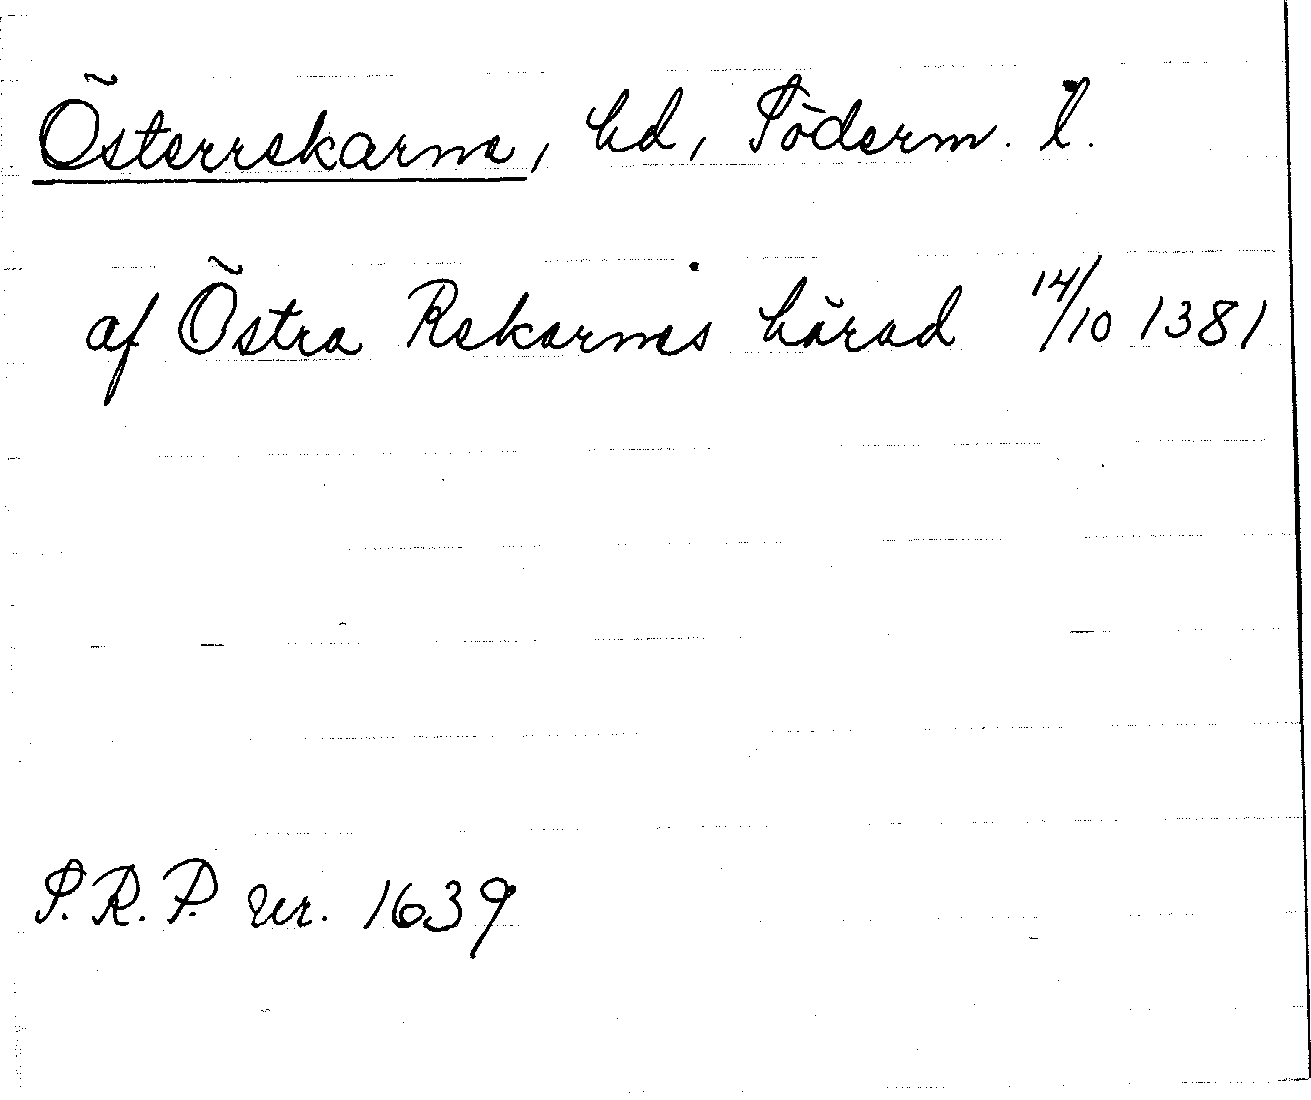 Österrekarne, hd, Söderm. l.
af Östra Rekarnes härad 14/10 1381
S.R.P. nr. 1639